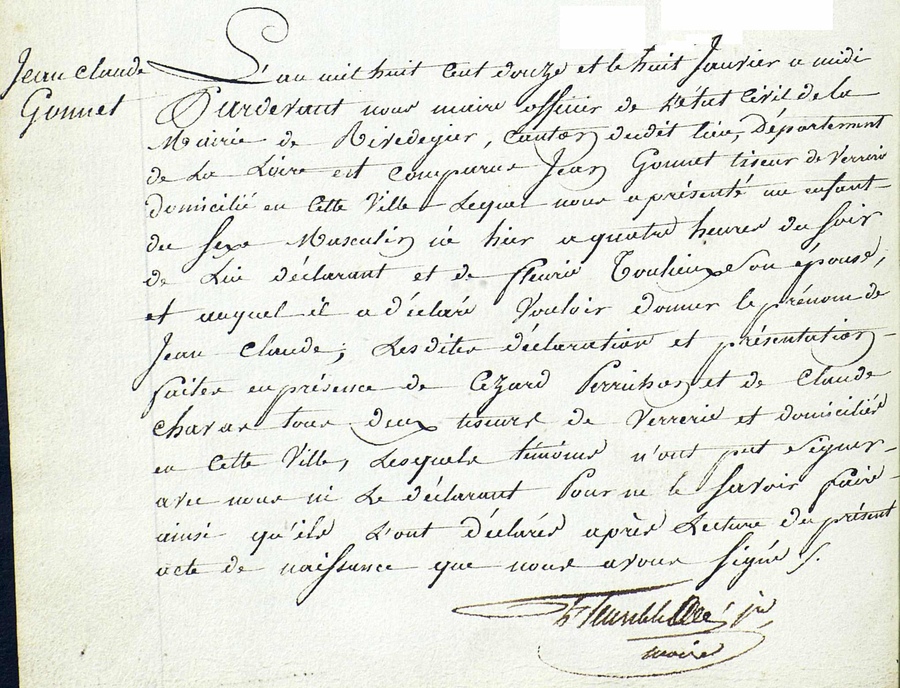 Jean Claude
Gonnet
L'an mil huit cent douze et le huit Janvier a midi
Pardevant nous maire officier de L'état Civil de la
Mairie de Rivedegier, Canton dudit lieu, Département
de La Loire est comparu Jean Gonnet tiseur de Verrerie
domicilié en Cette Ville Lequel nous a présenté un enfant
du Sexe Masculin né hier a quatre heures du Soir
de Lui déclarant et de fleurie Toulieux Son épouse,
et auquel il a déclaré Vouloir donner le prénom de
Jean Claude; Lesdites déclaration et présentation
faites en présence de Cezard Perrichon et de Claude
Charas tous deux tiseurs de Verrerie et domiciliés
en Cette Ville, Lesquels témoins n'ont put Signer
avec nous ni Le déclarant Pour ne le Savoir faire
ainsi qu'ils L'ont déclarés après Lecture du présent
acte de naissance que nous avons Signé
maire